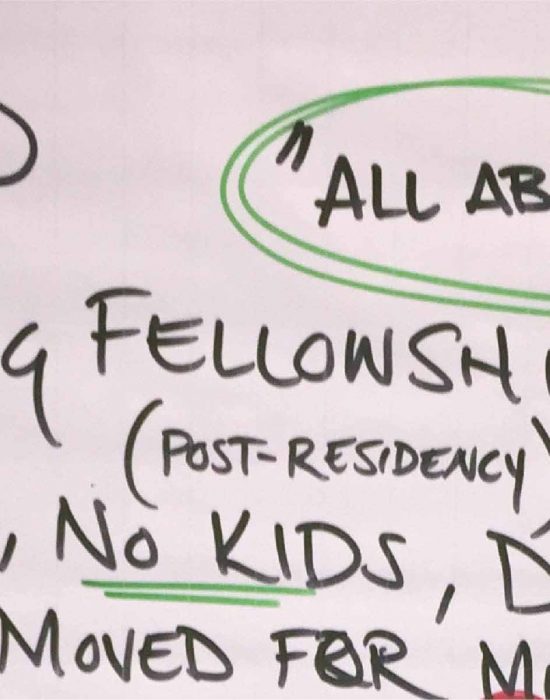 "ALL AB
FELLOWSH
(POST-RESIDENCY)
, NO KIDS, D
MOVED FOR M